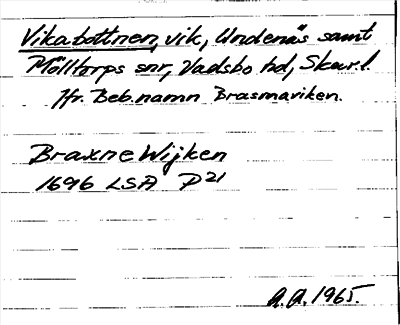 Vikabottnen, vik, Undenäs samt
Mölltorps snr, Vadsbo hd, Skarl.
Jfr. Beb.namn Brasmariken.
Braxne Wijken
1696 LSA P21
A.A. 1965.